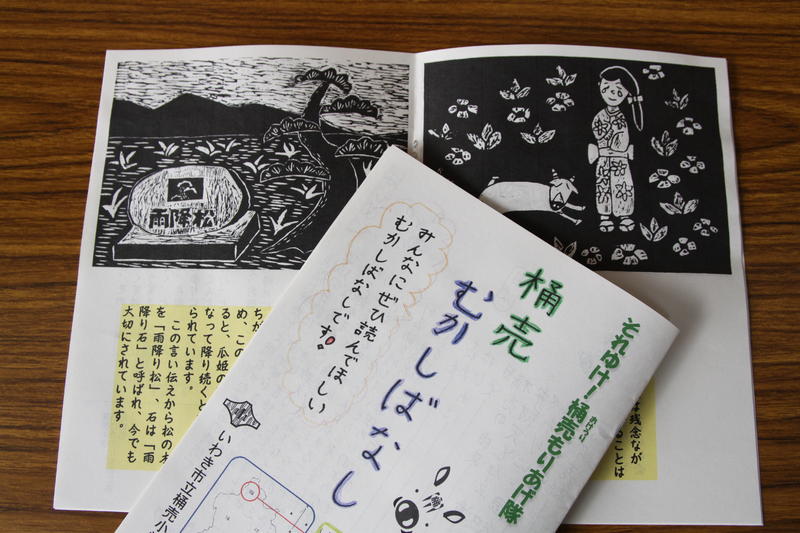 雨降松
は残念なが
ることは
ちが
め、この
ると、瓜姫の
なって降り続くと
られています。
この言い伝えから松の木
を「雨降り松」、石は「雨
降り石」と呼ばれ、今でも
大切にされています。
それゆけ!桶売もりあげ隊
おけうり
桶売
むかしばなし
みんなにぜひ読んでほしい
むかしばなしです!
いわき市立桶売小